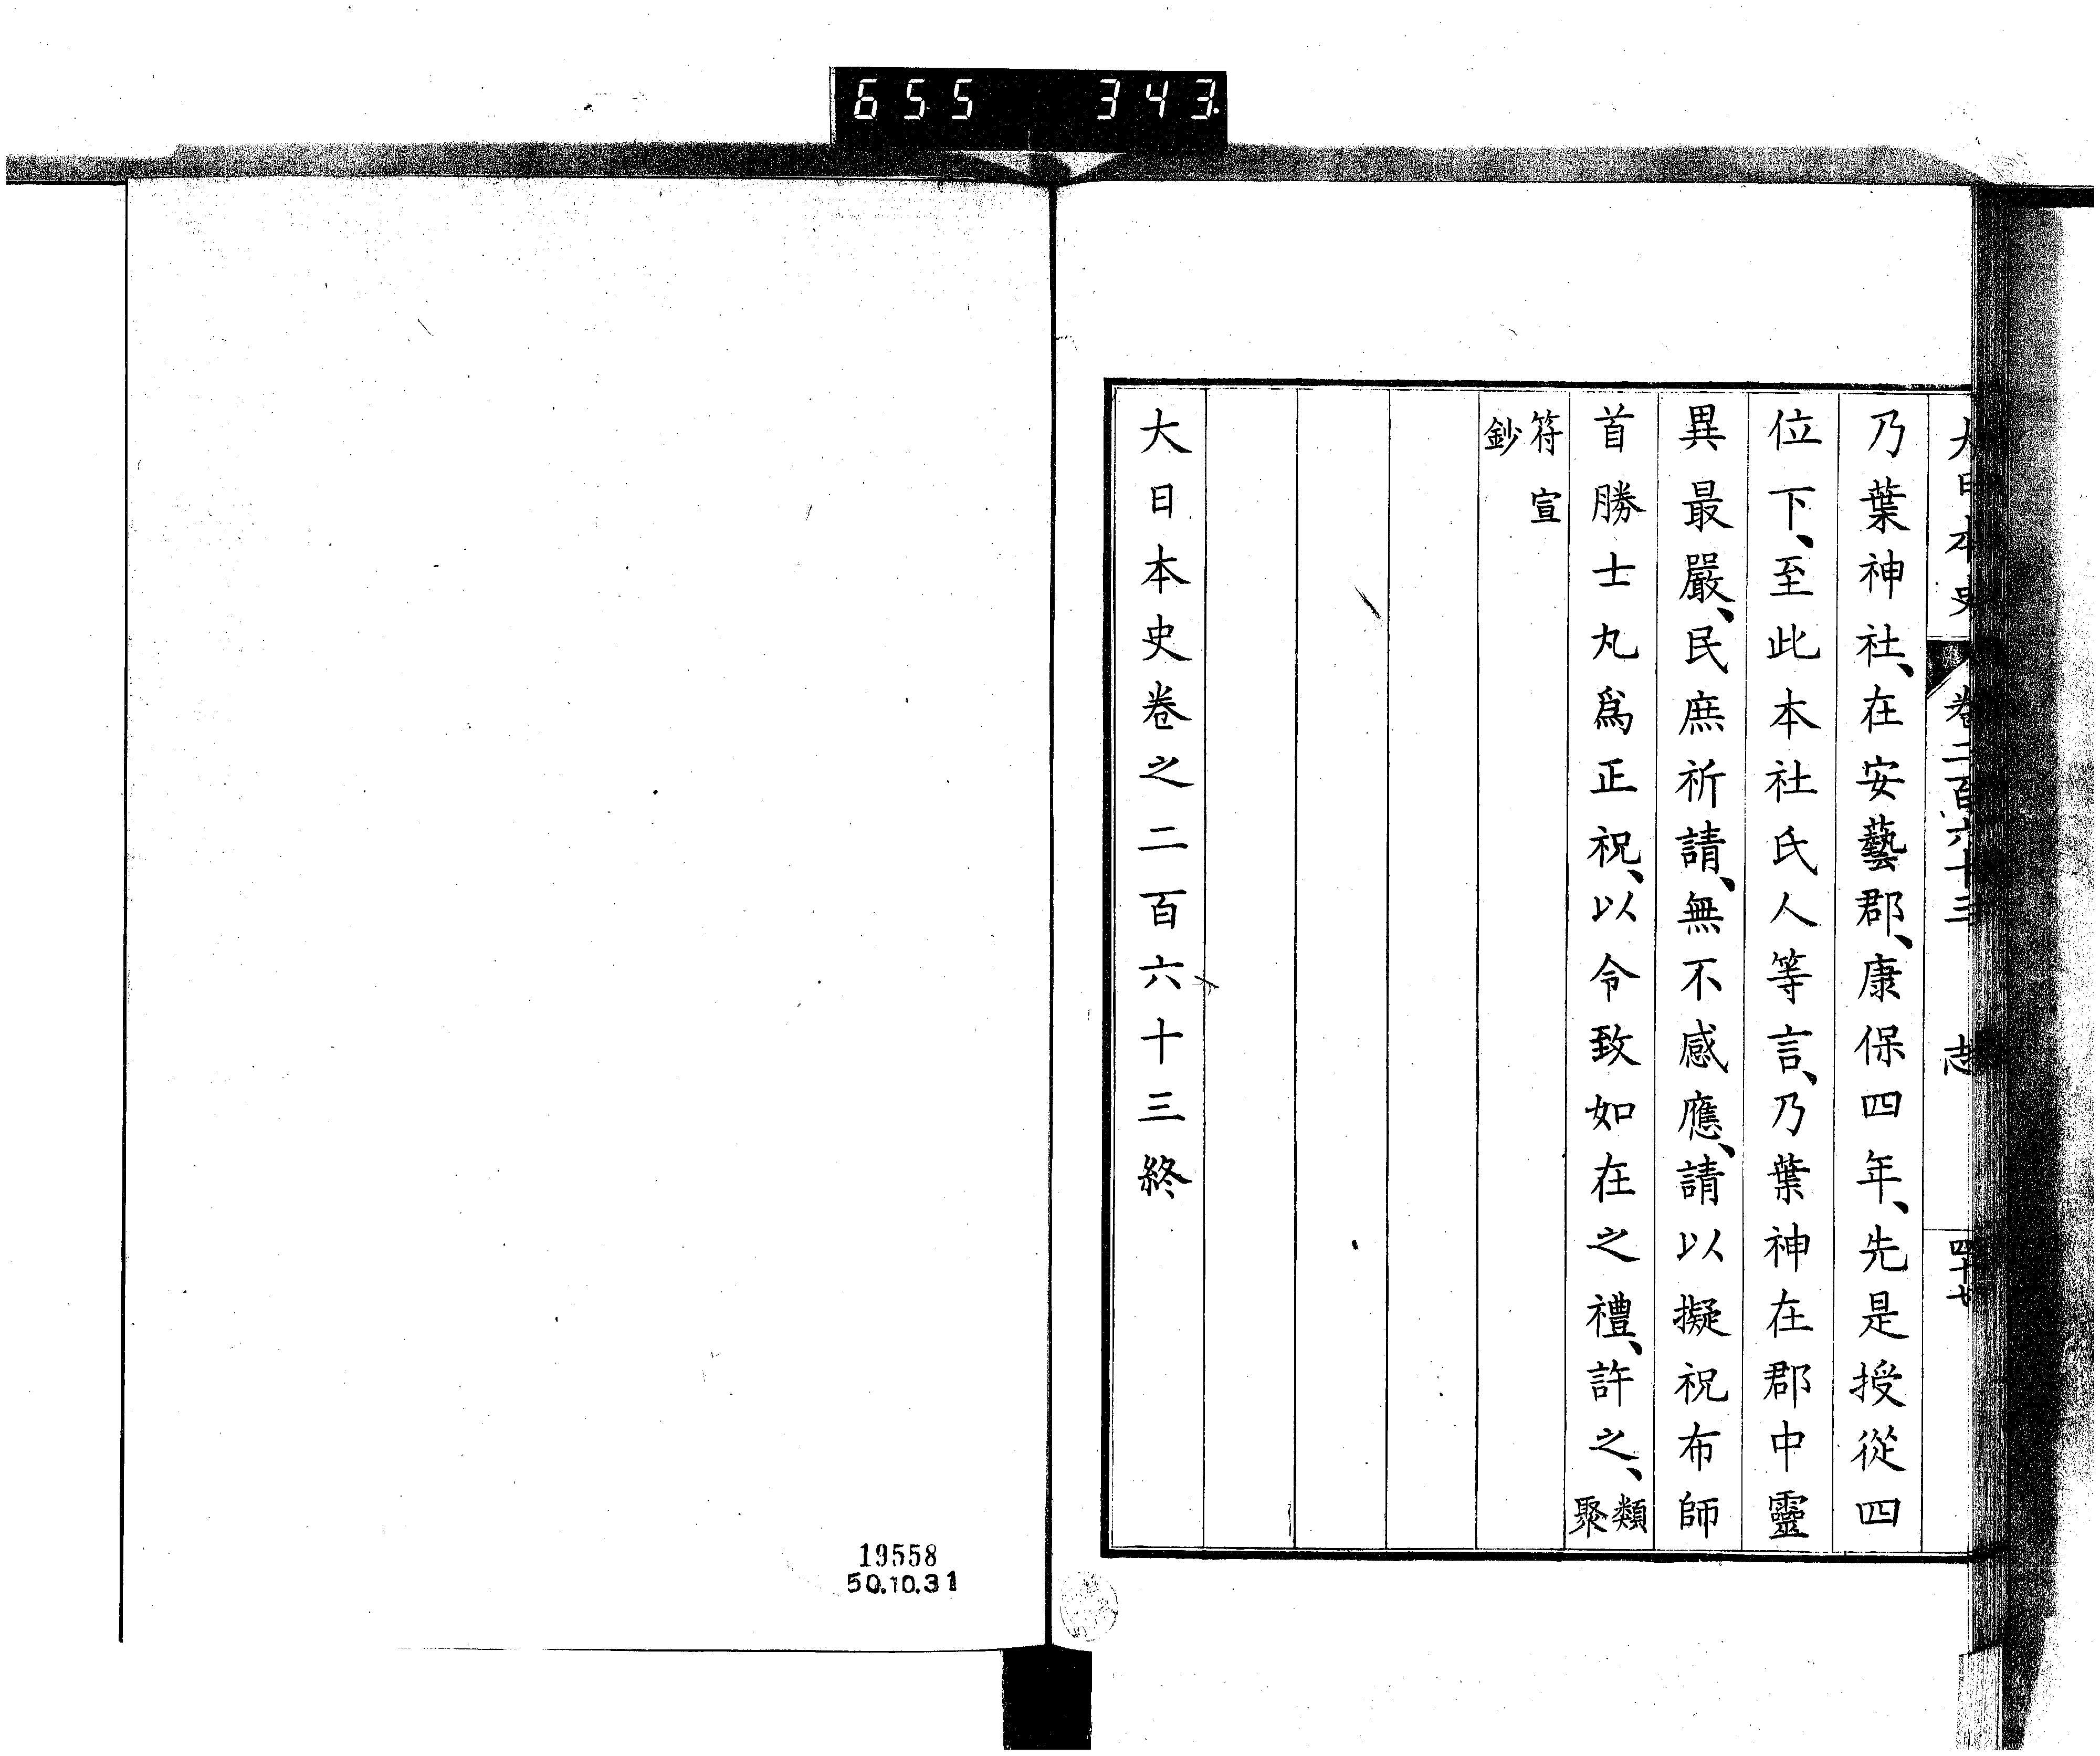 655 343
大日本史 卷二百六十三 志 四十七
乃葉神社、在安藝郡、康保四年、先是授從四
位下、至此本社氏人等言、乃葉神在郡中靈
異最嚴、民庶祈請、無不感應、請以擬祝布師
首勝士丸爲正祝、以令致如在之禮、許之、類聚
符宣鈔
大日本史卷之二百六十三終
19558
50.10.31